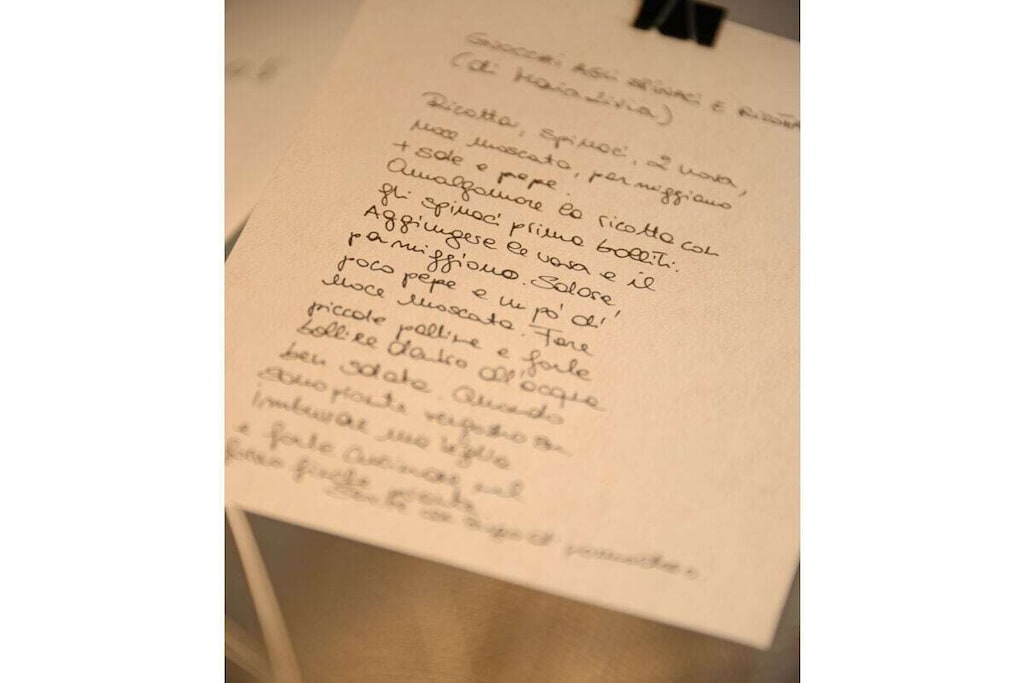 GNOCCHI AGLI SPINACI E RICOTTA
(di Maria Livia)
Ricotta, spinaci, 2 uova,
noce moscata, parmiggiano
+ sale e pepe.
Amalgamare la ricotta con
gli spinaci prima bolliti.
Aggiungere le uova e il
parmiggiano. Salare
poco pepe e un po' di
noce moscata. Fare
piccole palline e farle
bollire dentro all'acqua
ben salata. Quando
sono pronte
una teglia
e farle cucinare nel
forno finché